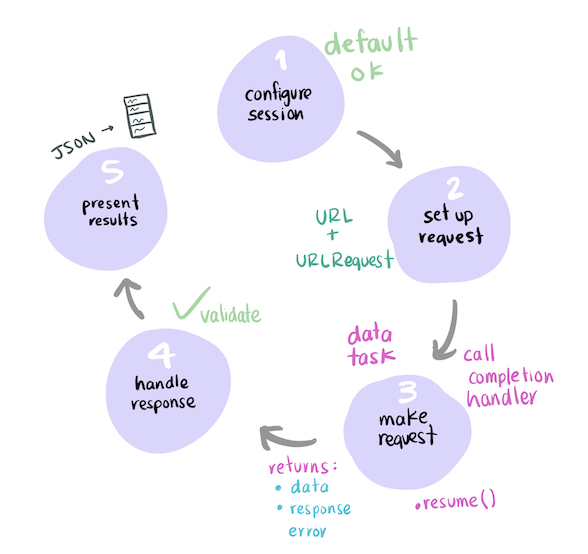 1
configure
session
default
ok
2
set up
request
URL
+
URLRequest
data
task
call
completion
handler
3
make
request
.resume()
returns:
• data
• response
error
4
handle
response
validate
5
present
results
JSON →